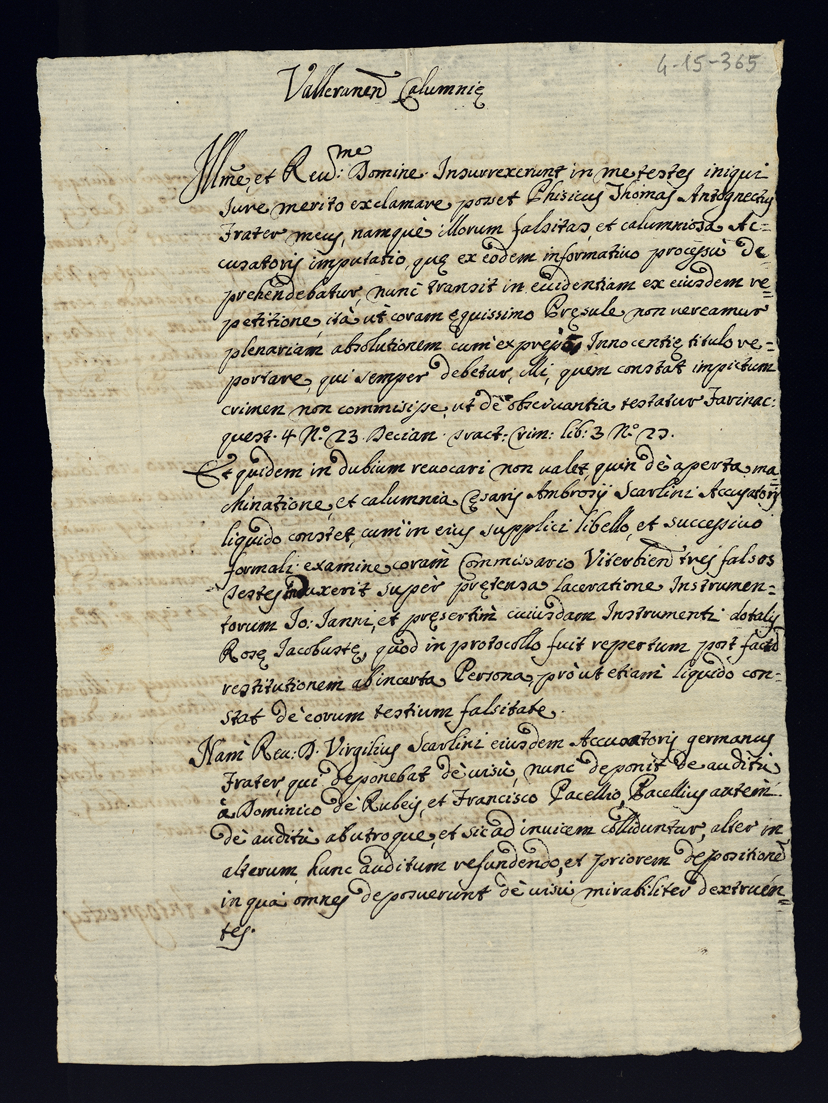 4-15-365
Valleranen Calumnię
Illme, et Reu:me Domine. Insurrexerunt in me testes iniqui
Jure merito exclamare posset Phisicus Thomas Antognectus
Frater meus, namque illorum falsitas, et calumniosa Ac-
cusatoris imputatio, quę ex eodem informatiuo processu de
prehendebatur, nunc transit in euidentiam ex eiusdem re=
petitione, ità ut coram ęquissimo Pręsule non vereamur
plenariam absolutionem cum expressis Innocentię titulo re=
portare, qui semper debetur, illi, quem constat impictum
crimen non commisisse, ut dè obseruantia testatur Farinac:
quest. 4 N.º 23. Decian. tract: Crim: lib: 3 N.º 23.
Et quidem in dubium reuocari non valet, quin dè aperta ma
chinatione, et calumnia Cęsaris Ambrosij Scarlini Accusatoris
liquido constet, cum in eius supplici libello, et successiuo
formali examine coram Commissario Viterbien tres falsos
Testes induxerit super prętensa laceratione Instrumen=
torum Jo: Janni, et pręsertim cuiusdam Instrumenti dotalis
Rosę Jacobustę, quod in protocollo fuit repertum post factà
restitutionem ab incerta Persona, proùt etiam liquido con=
stat dè eorum testium falsitate.
Nam Reu: D. Virgilius Scarlini eiusdem Accusatoris germanus
Frater, qui deponebat dè visù, nunc deponit de auditù
à Dominico dè Rubeis, et Francisco Pacellio, Pacellius autem
dè auditù ab utroque, et sic ad inuicem colliduntur, alter in
alterum hunc auditum refundendo, et priorem depositione
in qua omnes deposuerunt dè visù mirabiliter dextruen=
tes.